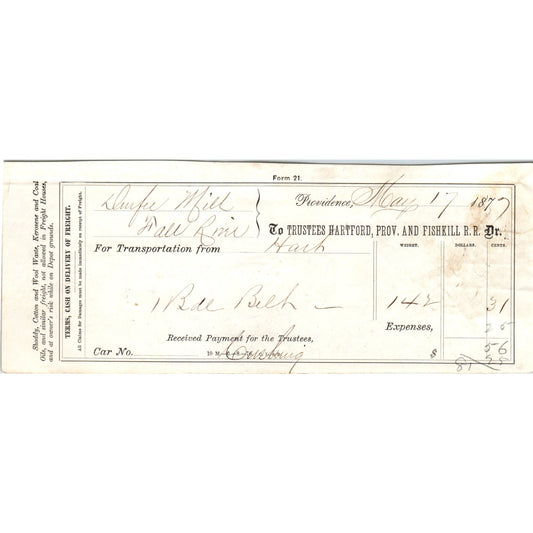 Form 21.
Durfee Mill
Fall River
Providence, May 17 1877
To TRUSTEES HARTFORD, PROV. AND FISHKILL R. R. Dr.
For Transportation from Hart
WEIGHT. DOLLARS. CENTS.
1 Bdl Belt — 142 31
Expenses, 25
Received Payment for the Trustees, 56
Car No. $
81
TERMS, CASH ON DELIVERY OF FREIGHT.
All Claims for Damages must be made immediately on receipt of Freight.
Shoddy, Cotton and Wool Waste, Kerosene and Coal
Oils, and similar freight, not allowed in Freight Houses,
and at owner's risk while on Depot grounds.